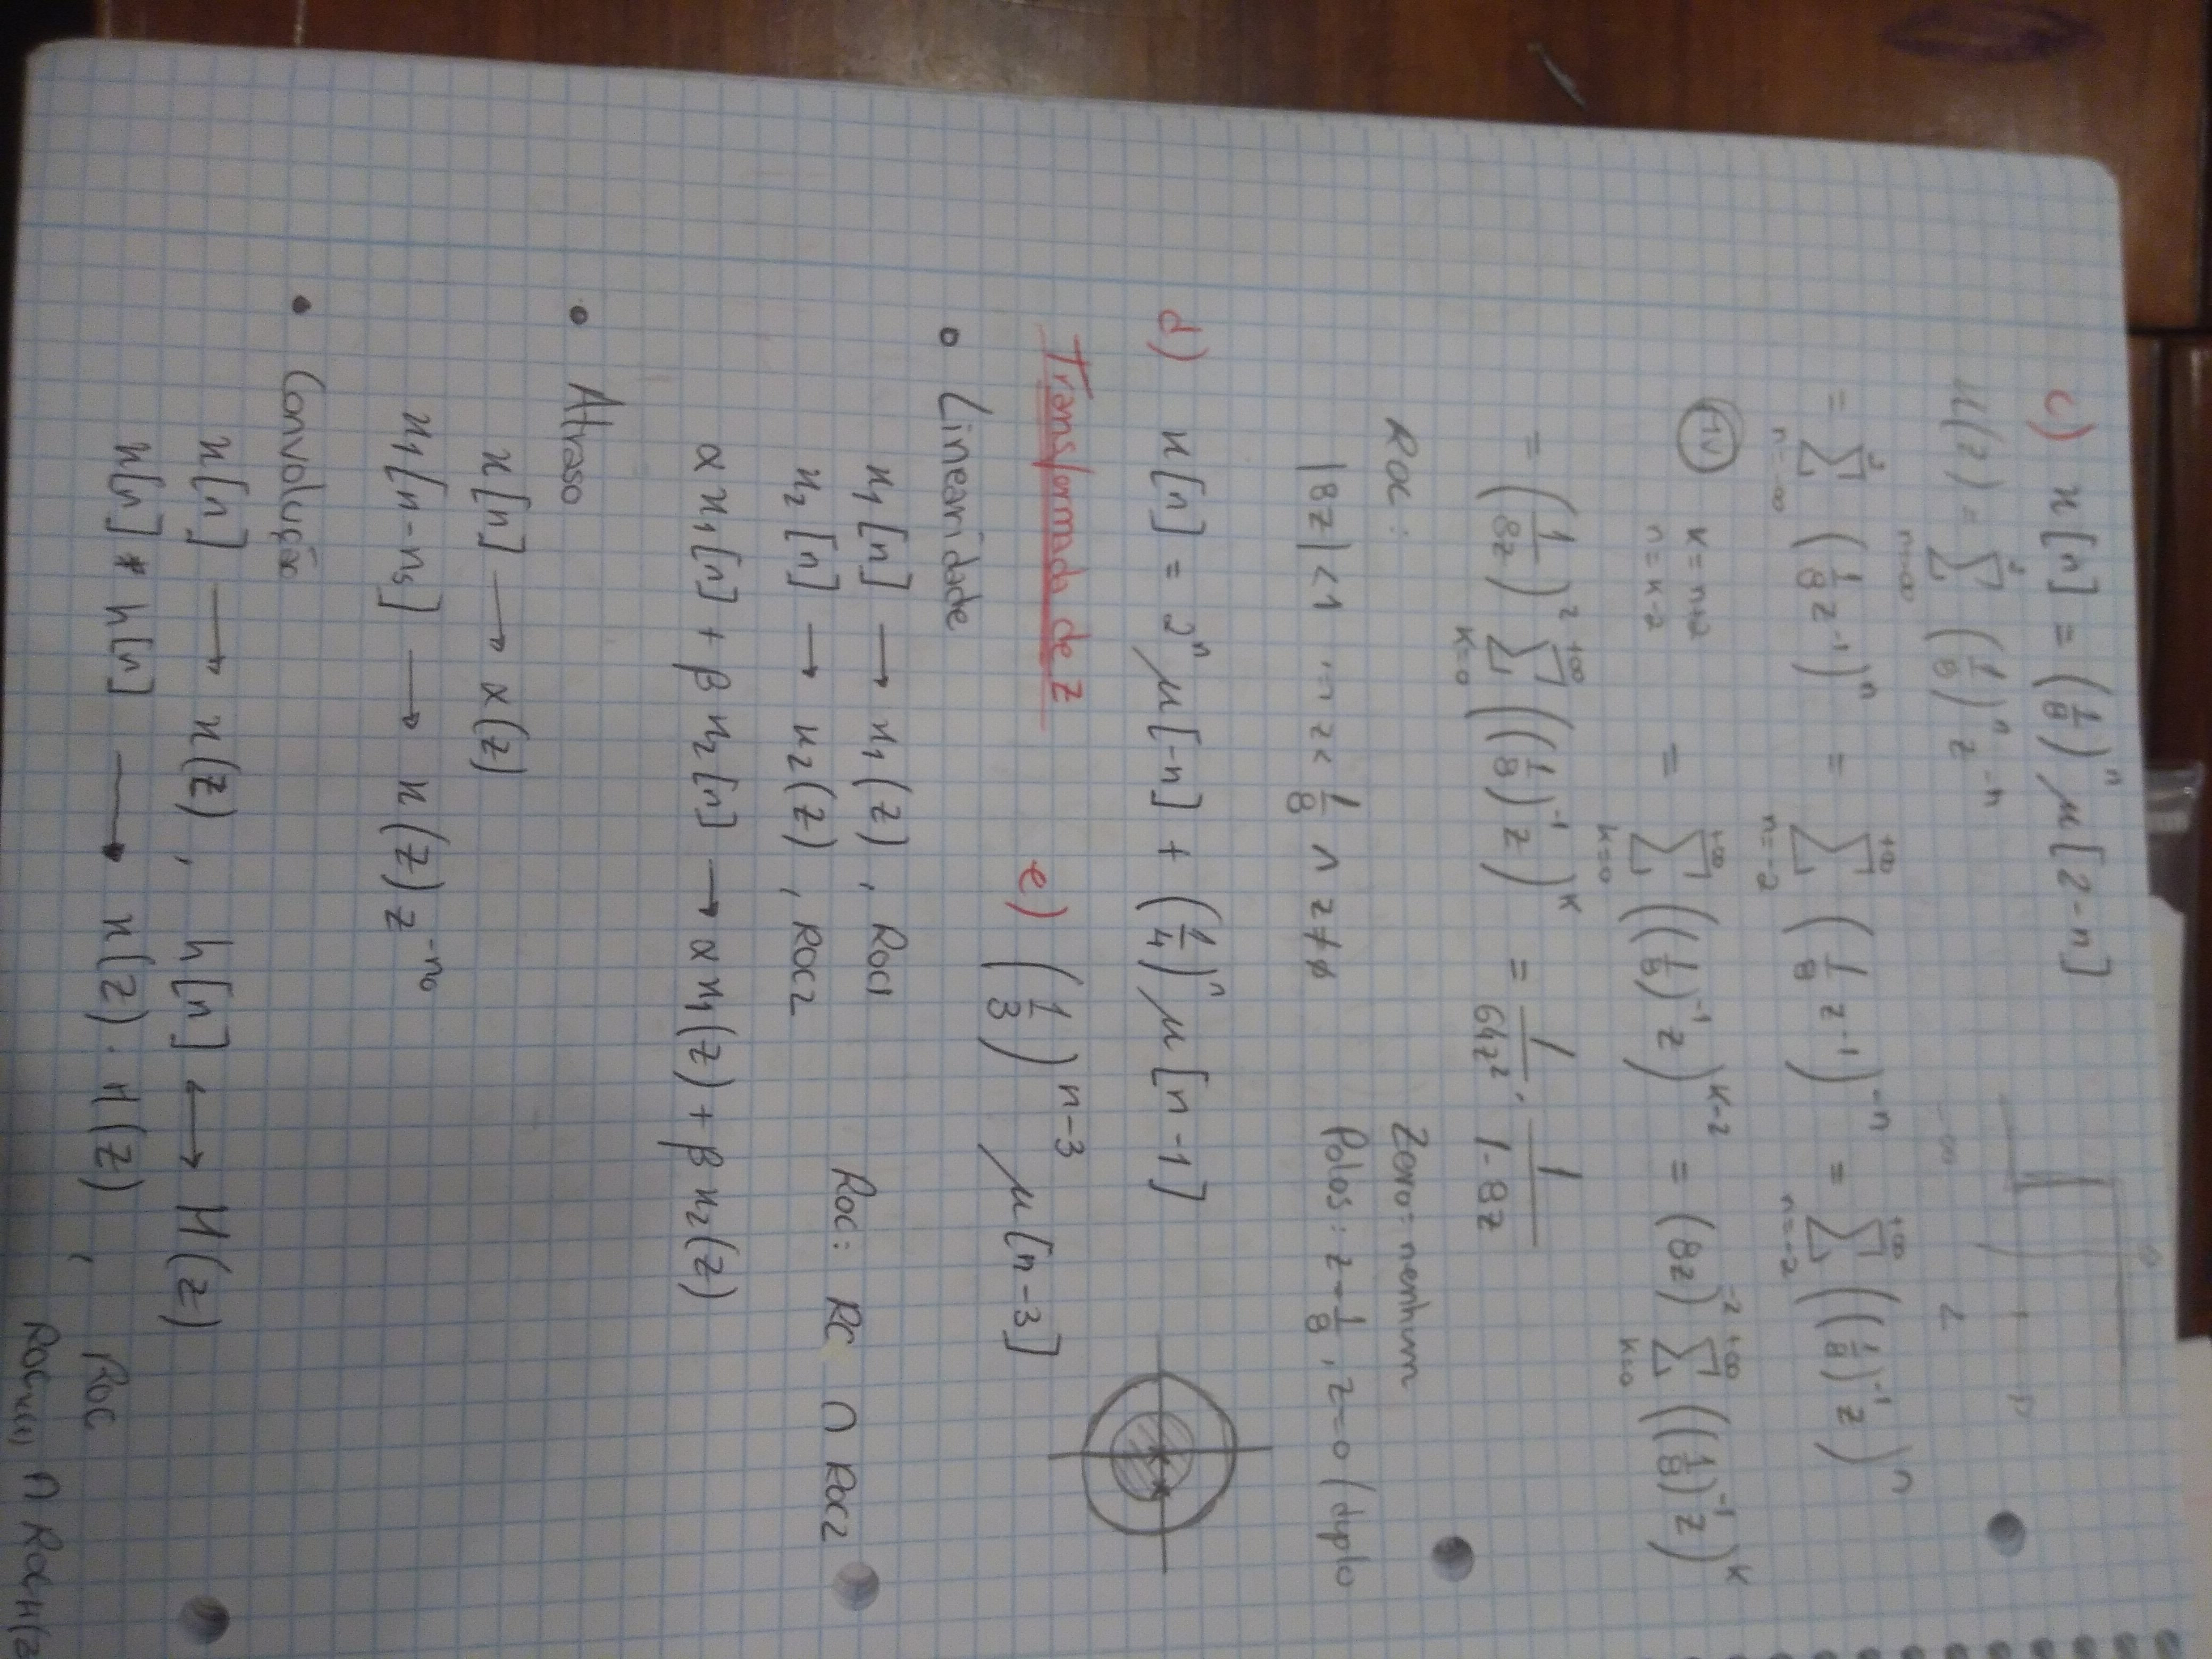 c) x[n] = (1/8)^n μ[2-n]
x(z) = Σ_{n=-∞}^{2} (1/8)^n z^{-n}
-∞ 2 n
= Σ_{n=-∞}^{2} (1/8 z^{-1})^n = Σ_{n=-2}^{+∞} (1/8 z^{-1})^{-n} = Σ_{n=-2}^{+∞} ((1/8)^{-1} z)^n
MV k = n+2
n = k-2
= Σ_{k=0}^{+∞} ((1/8)^{-1} z)^{k-2} = (8z)^{-2} Σ_{k=0}^{+∞} ((1/8)^{-1} z)^k
= (1/8z)^2 Σ_{k=0}^{+∞} ((1/8)^{-1} z)^k = 1/64z² · 1/1-8z
ROC:
Zero: nenhum
|8z| < 1 z < 1/8 ∧ z ≠ 0
Polos: z = 1/8, z = 0 (duplo
d) x[n] = 2^n μ[-n] + (1/4)^n μ[n-1]
Transformada de Z
e) (1/3)^{n-3} μ[n-3]
• Linearidade
x₁[n] → x₁(z), ROC1
Roc: RC ∩ ROC2
x₂[n] → x₂(z), ROC2
α x₁[n] + β x₂[n] → α x₁(z) + β x₂(z)
• Atraso
x[n] → x(z)
x₁[n-n₅] → x(z) z^{-n₀}
• Convolução
x[n] → x(z), h[n] ↔ H(z)
x[n] * h[n] → x(z) · H(z), ROC
ROC_{x(z)} ∩ ROC_{H(z